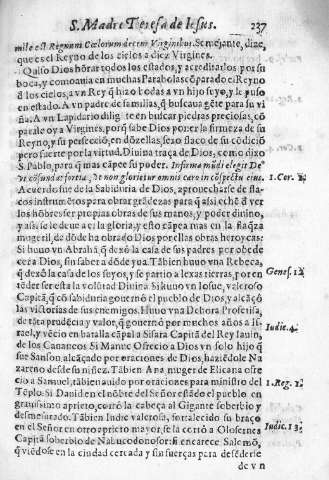 S. Madre Teresa de Iesus. 237
mile est Regnum Cælorum decem Virginibus. Semejante, dize,
que es el Reyno de los cielos a diez Virgines.
Quiso Dios hōrar todos los estados, y acreditarlos por su
boca, y como auia en muchas Parabolas cōparado el Reyno
d̄ los cielos, a vn Rey q̄ hizo bodas a vn hijo suyo, y le puso
en estado. A vn padre de familias, q̄ buscaua gēte para su vi
ña. A vn Lapidario diligēte en buscar piedras preciosas, cō
parale oy a Virgines, porq̄ sabe Dios poner la firmeza de su
Reyno, y su perfeccion, en dōzellas, sexo flaco de su cōdiciō
pero fuerte por la virtud. Diuina traça de Dios, como dixo
S. Pablo, para q̄ mas cāpee su poder. Infirma mūdi elegit De⁹
vt cōfundat fortia, vt non glorietur omnis caro in cōspectu eius. 1. Cor. 1.
Acuerdo fue de la Sabiduria de Dios, aprouecharse de flacos
instrumentos para obrar grādezas para q̄ assi echē d̄ ver
los hōbres ser propias obras de sus manos, y poder diuino,
y assi se le deue a el la gloria, y esto cāpea mas en la flaq̄za
mugeril, da dōde ha obrado Dios por ellas obras heroycas:
Si huuo vn Abrahā, q̄ dexó la casa de sus padres por obede
cer a Dios, sin saber a dōde yua. Tābien huuo vna Rebeca, Genes. 12.
q̄ dexó la casa de los suyos, y se partio a lexas tierras, por en
tēder ser esta la volūtad Diuina Si huuo vn Iosue, valeroso
Capitā, q̄ cō sabiduria gouernó el pueblo de Dios, y alcāçó
las victorias de sus enemigos. Huuo vna Debora Profetisa,
de tāta prudēcia y valor, q̄ gouernó por muchos años a Is- Iudic. 4.
rael, y vēcio en batalla cāpal a Sisara Capitā del Rey Iabin,
de los Cananeos. Si Manue Ofrecio a Dios vn solo hijo q̄
fue Sanson alcāçado por oraciones de Dios, haziēdole Na
zareno desde su niñez. Tābien Ana muger de Elcana ofre
cio a Samuel, tābien auido por oraciones para ministro del 1. Reg. 1.
Tēplo. Si Dauid en el nōbre del Señor estādo el pueblo en
grauissimo aprieto, cortó la cabeça al Gigante soberbio y
desmesurado. Tābien Iudic valerosa, fortalecido su braço
en el Señor en otro aprieto mayor, se la cortó a Olofernes Iudic. 13.
Capitā soberbio de Nabucodonosor: si encarece Salomō,
q̄ viēdose en la ciudad cercada y sin fuerças para defēderse
de vn